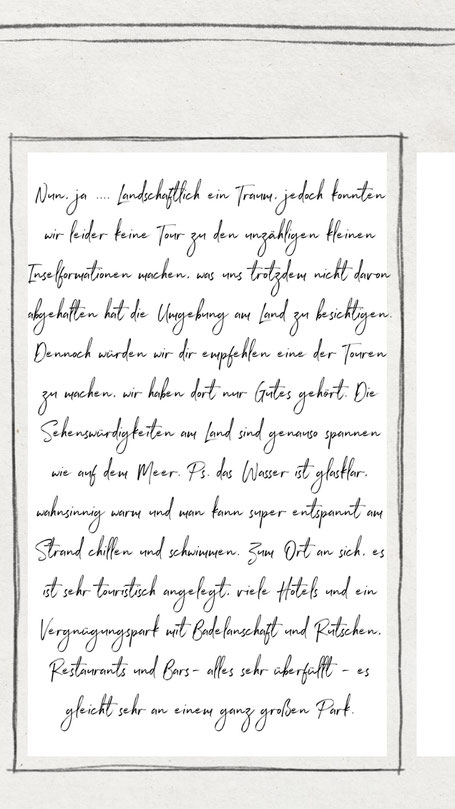 Nun, ja .... Landschaftlich ein Traum, jedoch konnten
wir leider keine Tour zu den unzähligen kleinen
Inselformationen machen, was uns trotzdem nicht davon
abgehalten hat die Umgebung am Land zu besichtigen.
Dennoch würden wir dir empfehlen eine der Touren
zu machen, wir haben dort nur Gutes gehört. Die
Sehenswürdigkeiten am Land sind genauso spannen
wie auf dem Meer. Ps. das Wasser ist glasklar,
wahnsinnig warm und man kann super entspannt am
Strand chillen und schwimmen. Zum Ort an sich, es
ist sehr touristisch angelegt, viele Hotels und ein
Vergnügungspark mit Badelanschaft und Rutschen,
Restaurants und Bars- alles sehr überfüllt - es
gleicht sehr an einem ganz großen Park.